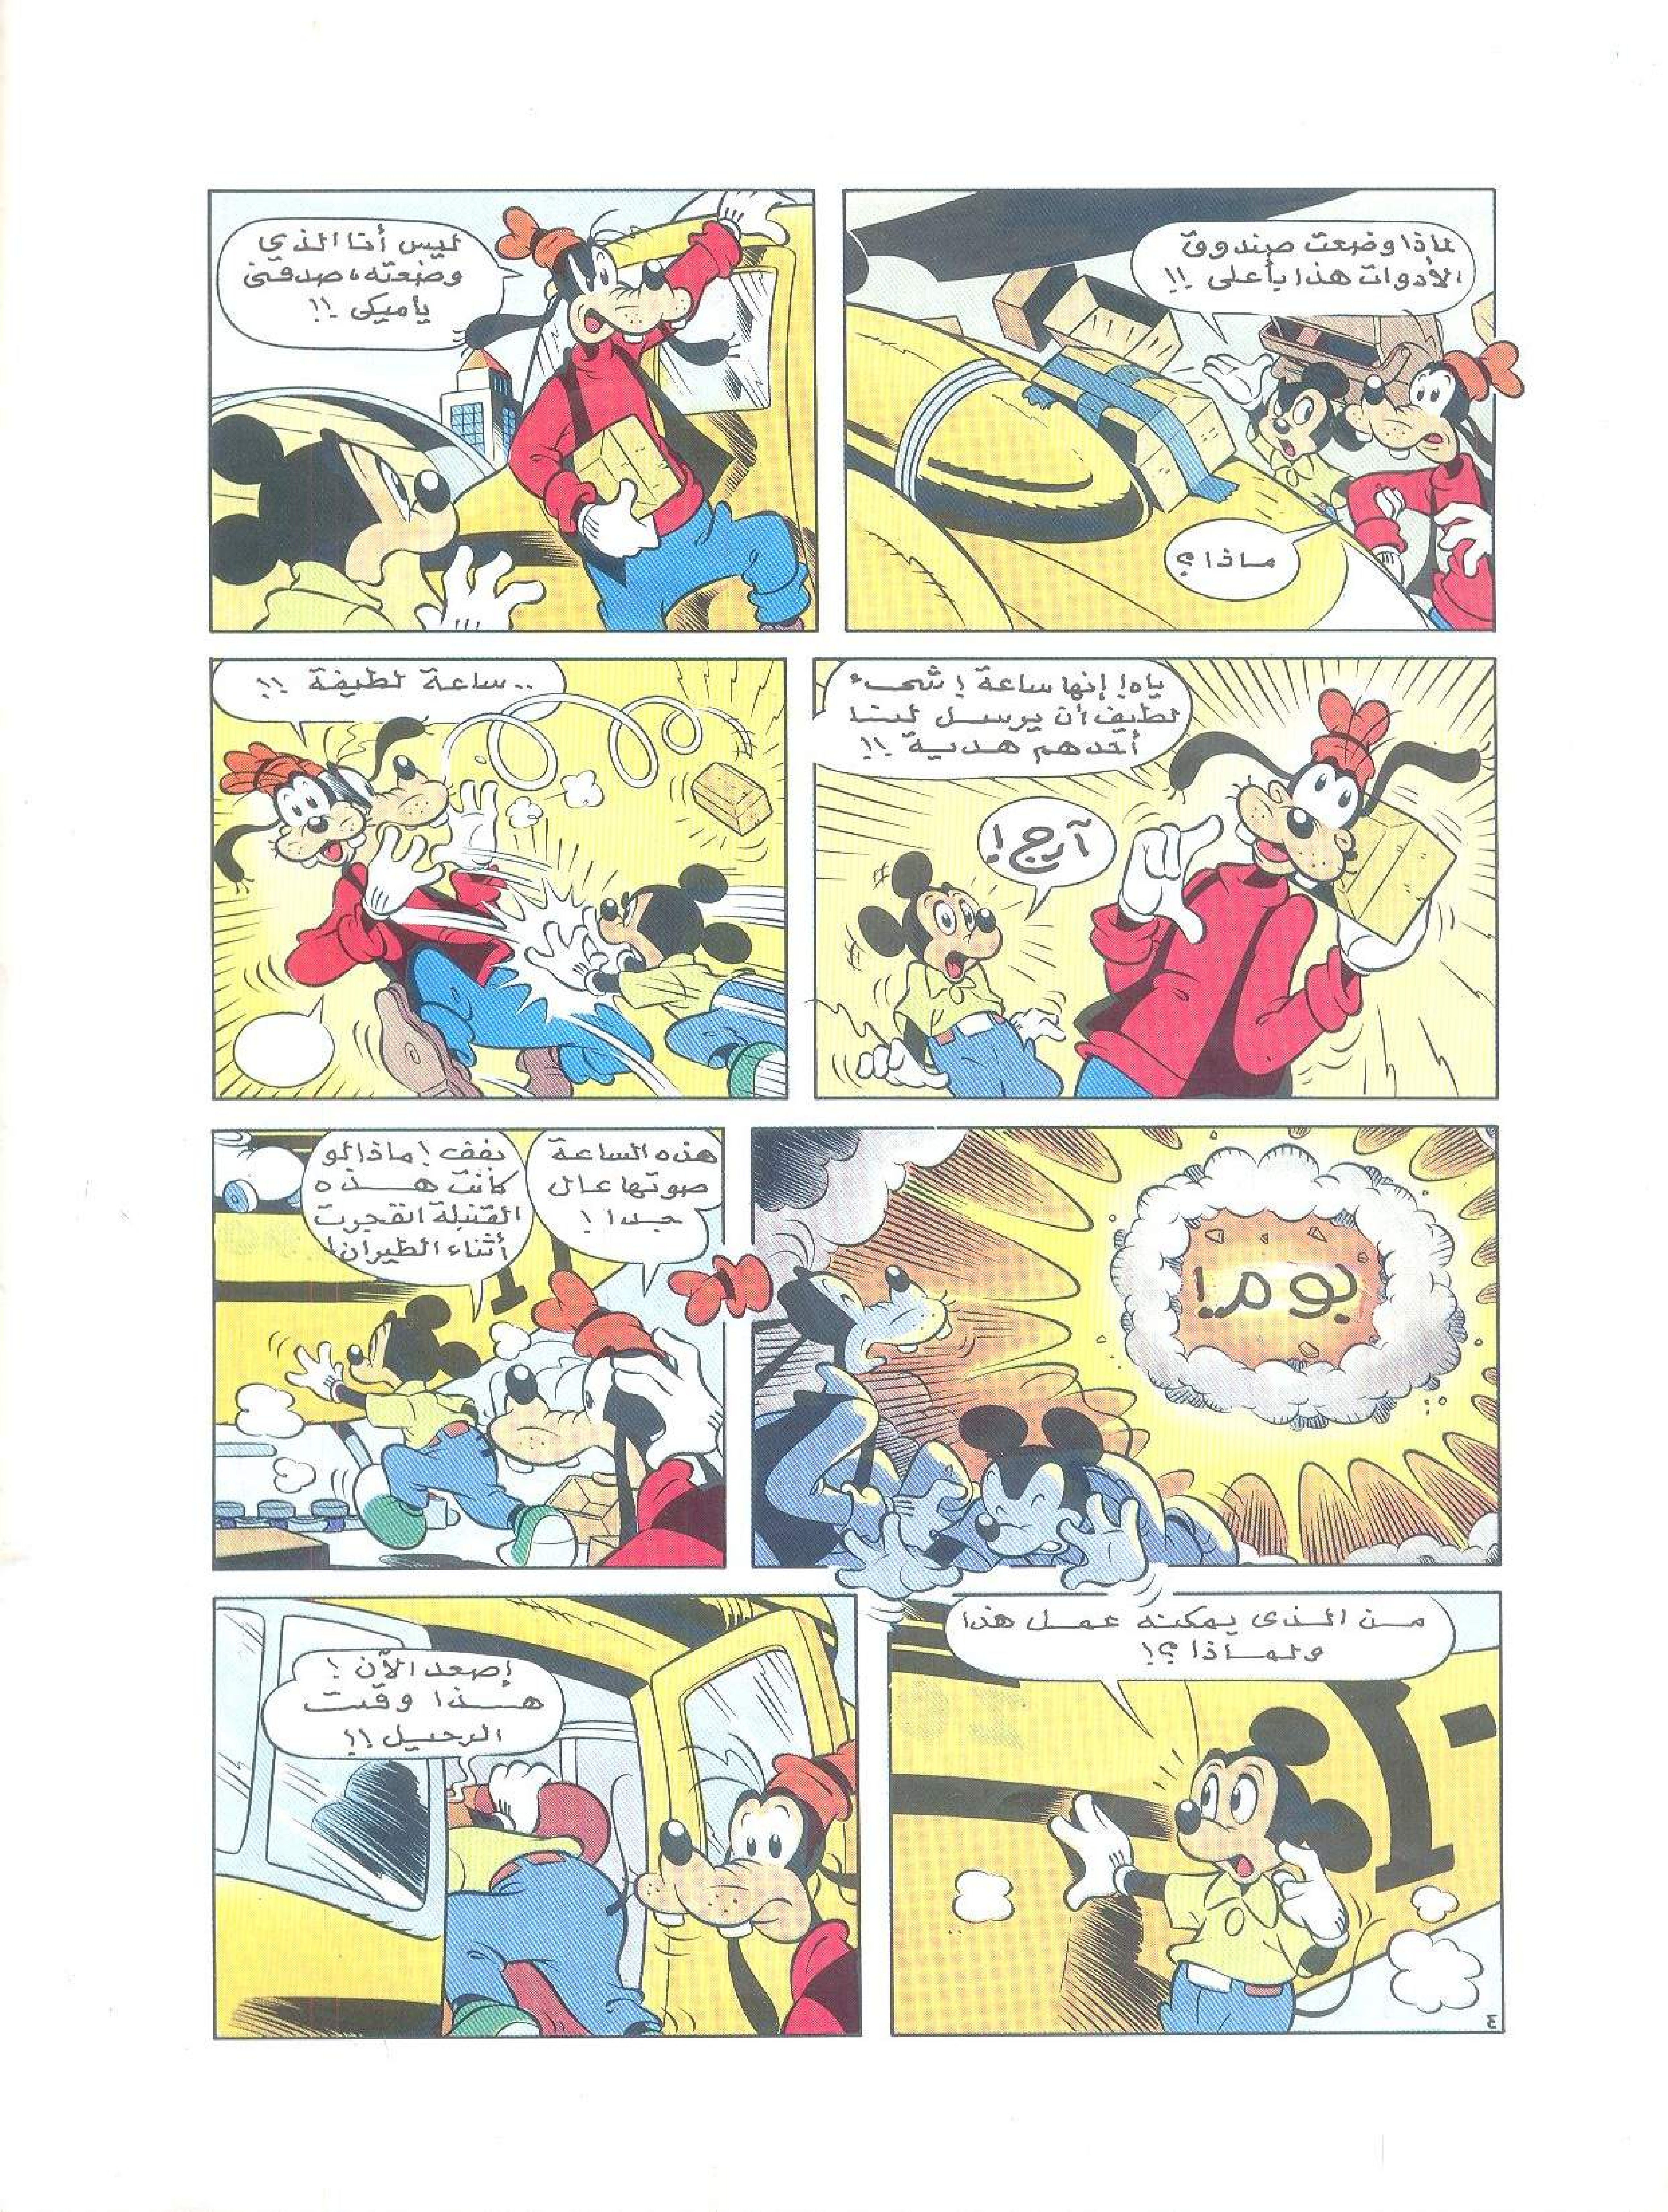 لماذا وضعت صندوق
الأدوات هذا بأعلى !!
ماذا؟
ليس أنا الذي
وضعته، صدقنى
يا ميكى !!
ياه! إنها ساعة ! شىء
لطيف أن يرسل لنا
أحدهم هدية !!
آرج !
.. ساعة لطيفة !!
بوم!
هذه الساعة
صوتها عال
جدا !
بفف ! ماذا لو
كانت هذه
القنبلة انفجرت
أثناء الطيران!
من الذى يمكنه عمل هذا
ولماذا ؟!
إصعد الآن !
هذا وقت
الرحيل !!
٤